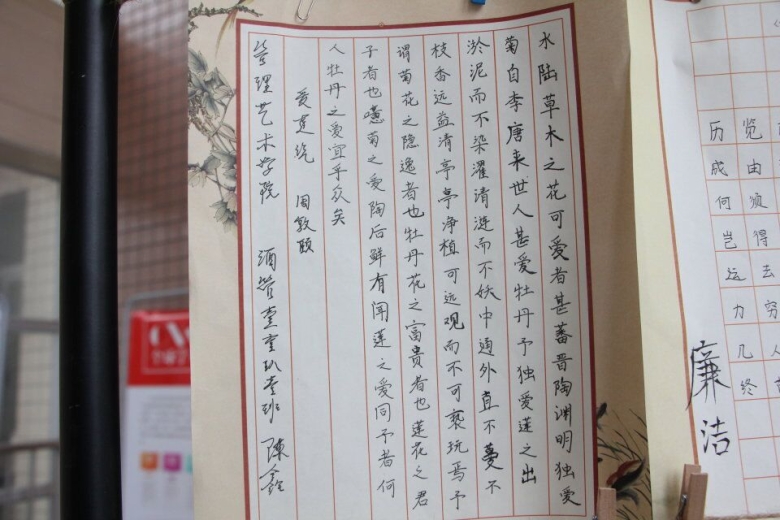 水陆草木之花可爱者甚蕃晋陶渊明独爱
菊自李唐来世人甚爱牡丹予独爱莲之出
淤泥而不染濯清涟而不妖中通外直不蔓不
枝香远益清亭亭净植可远观而不可亵玩焉予
谓菊花之隐逸者也牡丹花之富贵者也莲花之君
子者也噫菊之爱陶后鲜有闻莲之爱同予者何
人牡丹之爱宜乎众矣
爱莲说 周敦颐
管理艺术学院 陳鑫
历览
成由
何须
岂得
运去
力穷
几人
终
廉洁